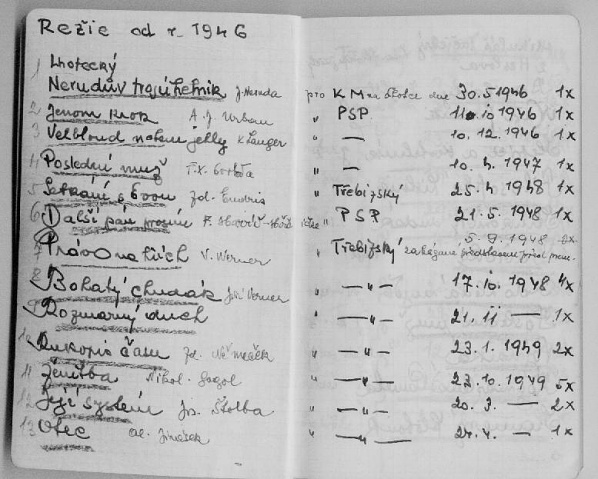 Režie od r. 1946
1 Lhotecký
Nerudův trojúhelník J. Neruda pro KM na Skalce dne 30.5 1946 1x
2 Jenom krok A. J. Urban " PSP 11.10 1946 1x
3 Velbloud uchem jehly K Langer " — 10.12.1946 1x
4 Poslední muž F.X. Svoboda " — 10.4.1947 1x
5 Setkání s Evou Zd. Endris " Třebízský 25.4 1948 1x
6 Další pan prosím F. " PSP 21.5.1948 1x
5.9.1948
7 Právo na hřích V. Werner " Třebízský zakázané představení před prem.
8 Bohatý chudák Jiř Verner " —"— 17.10.1948 4x
9 Rozmarný duch " —"— 21.11 — 1x
10 Rukopis času Zd. Němeček " —"— 23.1.1949 2x
11 Ženitba Nikol. Gogol " —"— 22.10.1949 5x
12 Její systém Jos. Štolba " —"— 20.3. — 2x
13 Otec al. Jirásek " —"— 24.4. — 1x